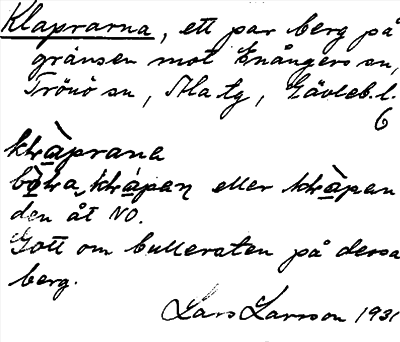 Klaprarna, ett par berg på
gränsen mot Enångers sn,
Trönö sn, Ala tg, Gävleb. l.
6
klàprana
bòra klápan eller klàpan
den åt NO.
Gott om bullersten på dessa
berg.
Lars Larsson 1931